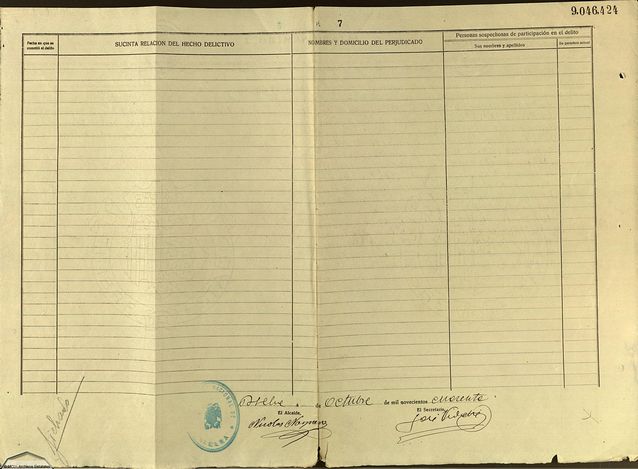 9.046.424
7
Fecha en que se cometió el delito
SUCINTA RELACION DEL HECHO DELICTIVO
NOMBRES Y DOMICILIO DEL PERJUDICADO
Personas sospechosas de participación en el delito
Sus nombres y apellidos
Su paradero actual
de Octubre de mil novecientos cuarenta
El Alcalde,
El Secretario,
Nicolás
José
Fichado